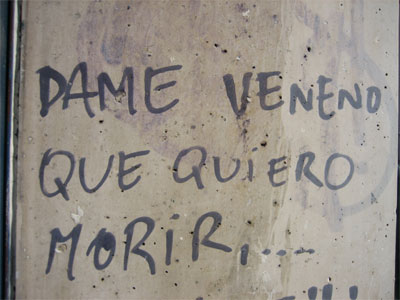 DAME VENENO
QUE QUIERO
MORIR,...